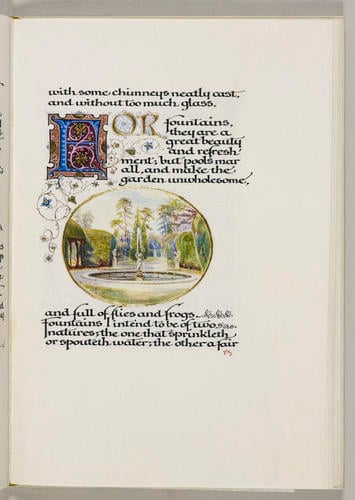 with some chimneys neatly cast,
and without too much glass.
FOR fountains,
they are a
great beauty
and refresh-
ment; but pools mar
all, and make the
garden unwholesome,
and full of flies and frogs.
Fountains I intend to be of two
natures; the one that sprinkleth
or spouteth water; the other a fair